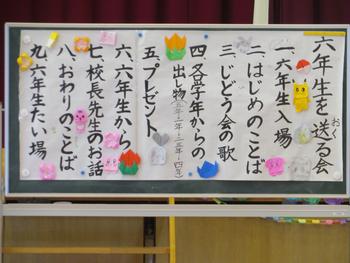 六年生を送る会
おく
一、六年生入場
二、はじめのことば
三、じどう会の歌
四、各学年からの
出し物(五年・一年・二年・三年・四年)
五、プレゼント
六、六年生から
七、校長先生のお話
八、おわりのことば
九、六年生たい場